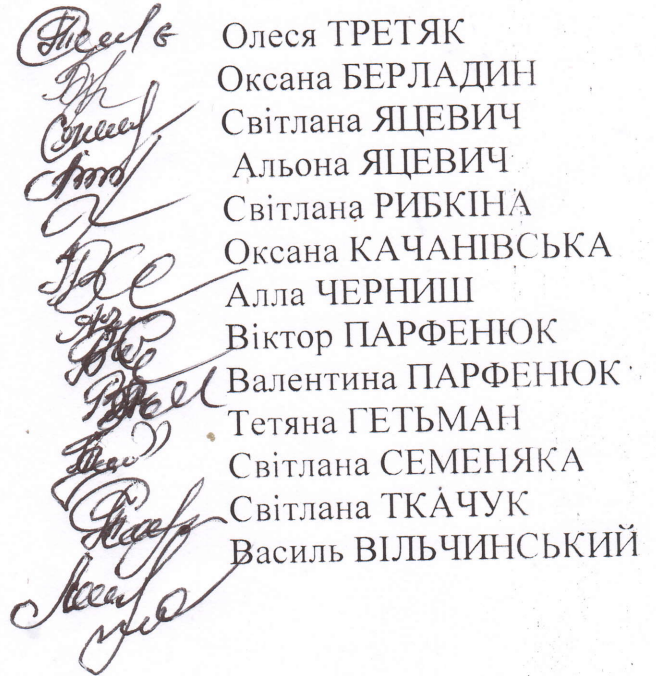 Олеся ТРЕТЯК
Оксана БЕРЛАДИН
Світлана ЯЦЕВИЧ
Альона ЯЦЕВИЧ
Світлана РИБКІНА
Оксана КАЧАНІВСЬКА
Алла ЧЕРНИШ
Віктор ПАРФЕНЮК
Валентина ПАРФЕНЮК
Тетяна ГЕТЬМАН
Світлана СЕМЕНЯКА
Світлана ТКАЧУК
Василь ВІЛЬЧИНСЬКИЙ